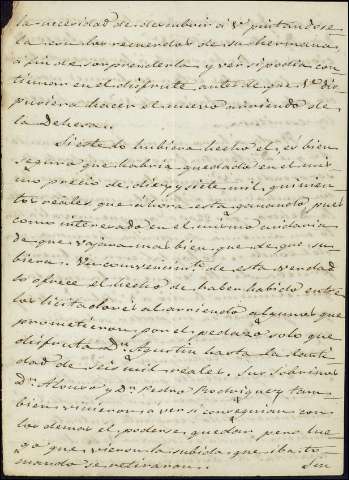 la necesidad de descubrir á V. pintandose
la con los recuerdos de su hermana,
á fin de sorprenderla y ver si podia con-
tinuar en el disfrute antes de que V. dis-
pusiera hacer el nuevo arriendo de
la Dehesa.
Si este lo hubiera hecho el, es bien
seguro que habria quedado en el mis-
mo precio de diez y siete mil, quinien-
tos reales que ahora esta ganando, pues
como interesado en el mismo cuidaria
de que vajara mas bien que de que su-
biera. Un convencimto. de esta verdad
lo ofrece el hecho de haber habido entre
los licitadores al arriendo algunos que
prometieron por el pedazo solo que
disfruta Dn. Agustin hasta la canti-
dad de seis mil reales. Sus sobrinos
Dn. Alonso y Dn. Pedro Rodriguez tam-
bien vinieron á ver si conseguian con
los demas el poderse quedar pero lue-
go que vieron la subida que iba to-
mando se retiraron.
Sin